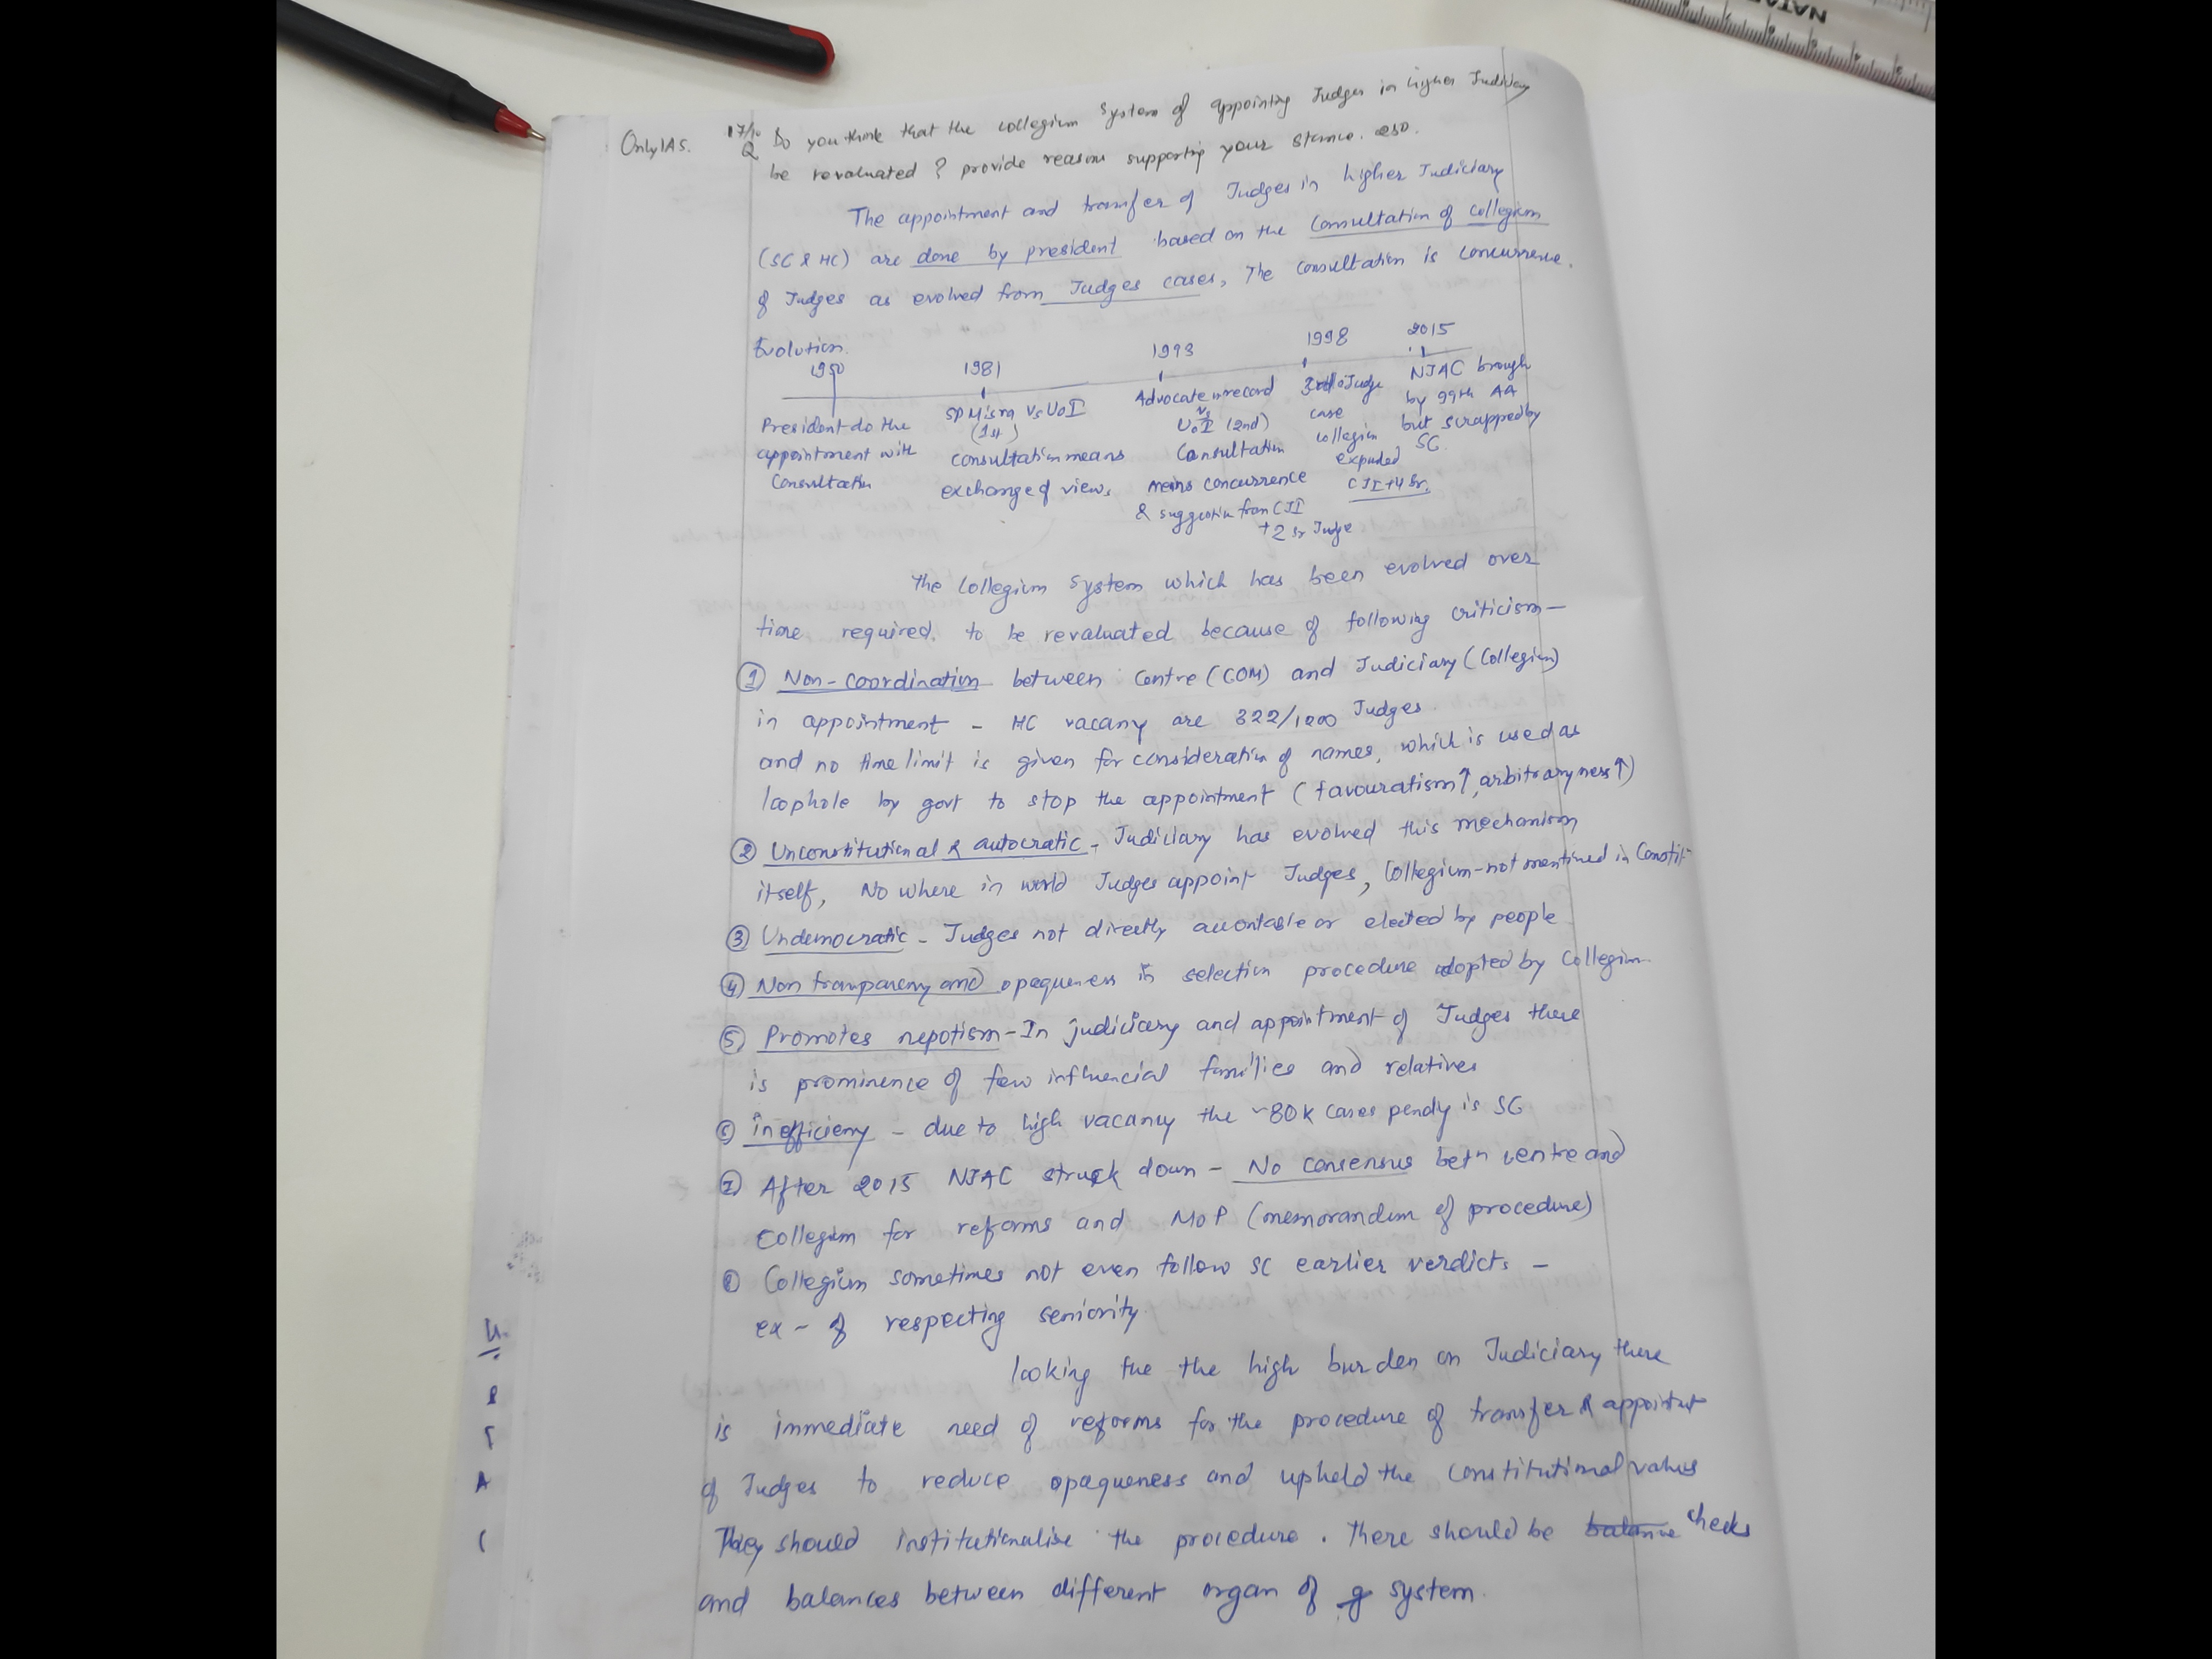 NATA
OnlyIAS. 17/10 Q Do you think that the collegium system of appointing Judges in higher Judiciary
be revaluated? provide reasons supporting your stance. 250.
The appointment and transfer of Judges in higher Judiciary
(SC & HC) are done by president based on the consultation of collegium
of Judges as evolved from Judges cases, The consultation is concurrence.
Evolution
1950 1981 1993 1998 2015
President do the
appointment with
Consultation
SP Misra Vs UoI
(1st)
consultation means
exchange of views
Advocate on record
Vs
UoI (2nd)
Consultation
means concurrence
& suggestion from CJI
+2 sr Judge
3rd Judge
case
collegium
expanded
CJI+4 Sr.
NJAC brough
by 99th AA
but scrapped by
SC
The Collegium system which has been evolved over
time required. to be revaluated because of following criticism—
① Non-coordination between Centre (COM) and Judiciary (Collegium)
in appointment - HC vacany are 322/1000 Judges.
and no time limit is given for consideration of names, which is used as
loophole by govt to stop the appointment (favouratism↑, arbitraryness↑)
② Unconstitutional & autocratic - Judiciary has evolved this mechanism
itself, No where in world Judges appoint Judges, Collegium-not mentioned in Constitn
③ Undemocratic - Judges not directly accontable or elected by people
④ Non tranparency and opaqueness in selection procedure adopted by Collegium
⑤ Promotes nepotism - In judiciary and appointment of Judges there
is prominence of few influencial families and relatives
⑥ inefficiency - due to high vacancy the ~80K cases pendy is SC
⑦ After 2015 NJAC struck down - No consensus betn centre and
Collegium for reforms and MoP (memorandum of procedure)
⑧ Collegium sometimes not even follow SC earlier verdicts -
ex - of respecting seniority
looking the the high burden on Judiciary there
is immediate need of reforms for the procedure of transfer & appointmt
of Judges to reduce opaqueness and uphold the constitutional values
They should institutionalise the procedure. there should be balance checks
and balances between different organ of system.